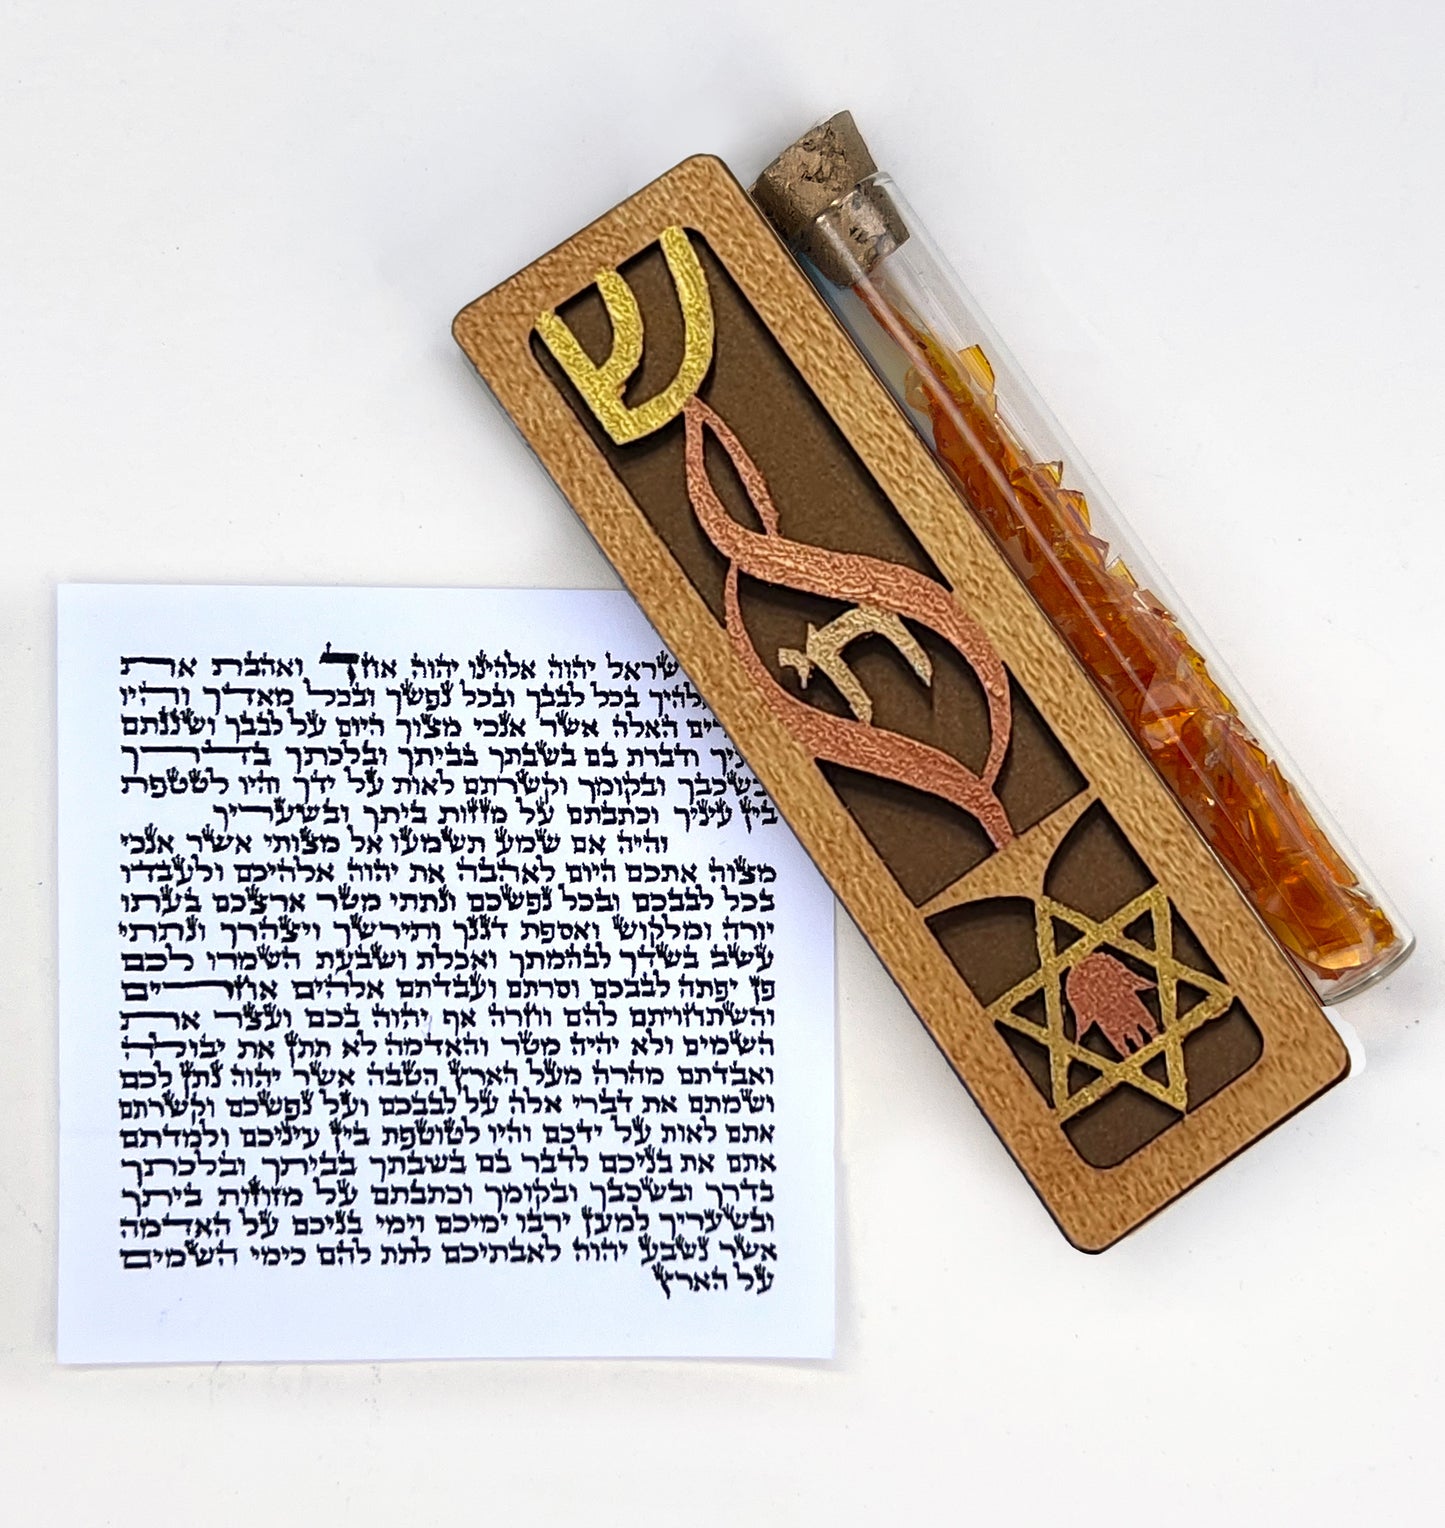 שראל יהוה אלהינו יהוה אחד ואהבת את
להיך בכל לבבך ובכל נפשך ובכל מאדך והיו
רים האלה אשר אנכי מצוך היום על לבבך ושננתם
יך ודברת בם בשבתך בביתך ובלכתך בדרך
בשכבך ובקומך וקשרתם לאות על ידך והיו לטטפת
בין עיניך וכתבתם על מזזות ביתך ובשעריך
והיה אם שמע תשמעו אל מצותי אשר אנכי
מצוה אתכם היום לאהבה את יהוה אלהיכם ולעבדו
בכל לבבכם ובכל נפשכם ונתתי מטר ארצכם בעתו
יורה ומלקוש ואספת דגנך ותירשך ויצהרך ונתתי
עשב בשדך לבהמתך ואכלת ושבעת השמרו לכם
פן יפתה לבבכם וסרתם ועבדתם אלהים אחרים
והשתחויתם להם וחרה אף יהוה בכם ועצר את
השמים ולא יהיה מטר והאדמה לא תתן את יבולה
ואבדתם מהרה מעל הארץ הטבה אשר יהוה נתן לכם
ושמתם את דברי אלה על לבבכם ועל נפשכם וקשרתם
אתם לאות על ידכם והיו לטוטפת בין עיניכם ולמדתם
אתם את בניכם לדבר בם בשבתך בביתך ובלכתך
בדרך ובשכבך ובקומך וכתבתם על מזוזות ביתך
ובשעריך למען ירבו ימיכם וימי בניכם על האדמה
אשר נשבע יהוה לאבתיכם לתת להם כימי השמים
על הארץ
ש
חי